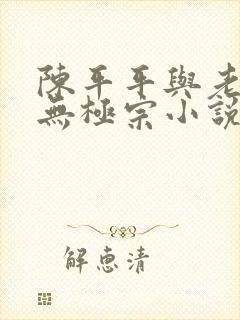 陳平平與老
無極宗小說
解惠清